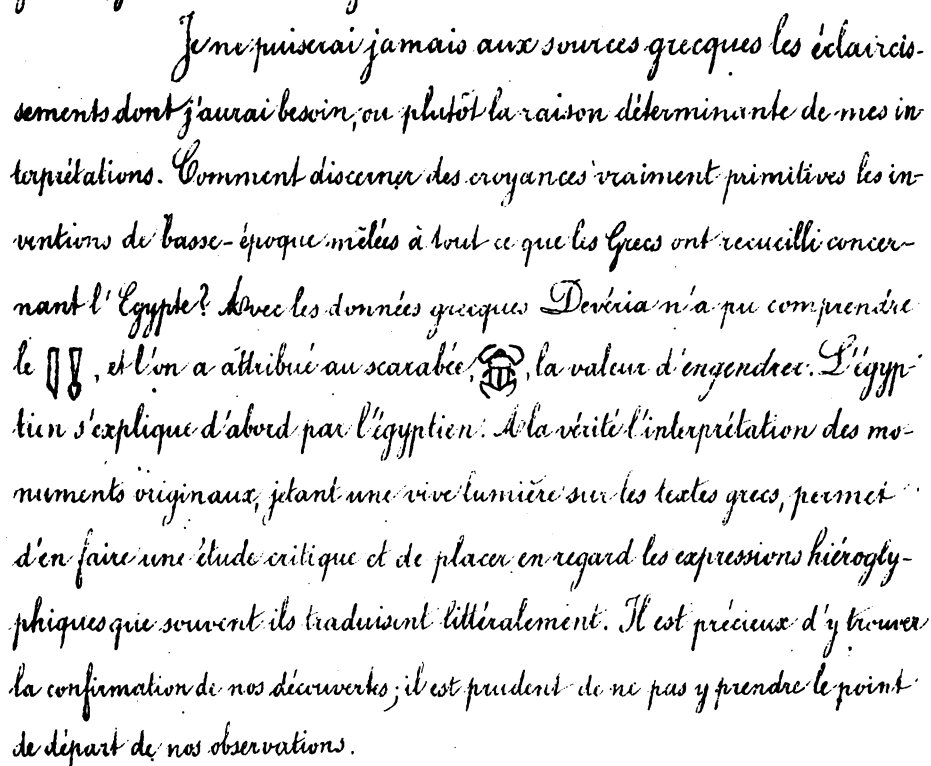 Je ne puiserai jamais aux sources grecques les éclaircis-
sements dont j'aurai besoin, ou plutôt la raison déterminante de mes in-
terprétations. Comment discerner des croyances vraiment primitives les in-
ventions de basse-époque mêlées à tout ce que les Grecs ont recueilli concer-
nant l'Egypte? Avec les données grecques Devéria n'a pu comprendre
le , et l'on a attribué au scarabée, , la valeur d'engendrer. L'égyp-
tien s'explique d'abord par l'égyptien. A la vérité l'interprétation des mo-
numents originaux, jetant une vive lumière sur les textes grecs, permet
d'en faire une étude critique et de placer en regard les expressions hiérogly-
phiques que souvent ils traduisent littéralement. Il est précieux d'y trouver
la confirmation de nos découvertes; il est prudent de ne pas y prendre le point
de départ de nos observations.